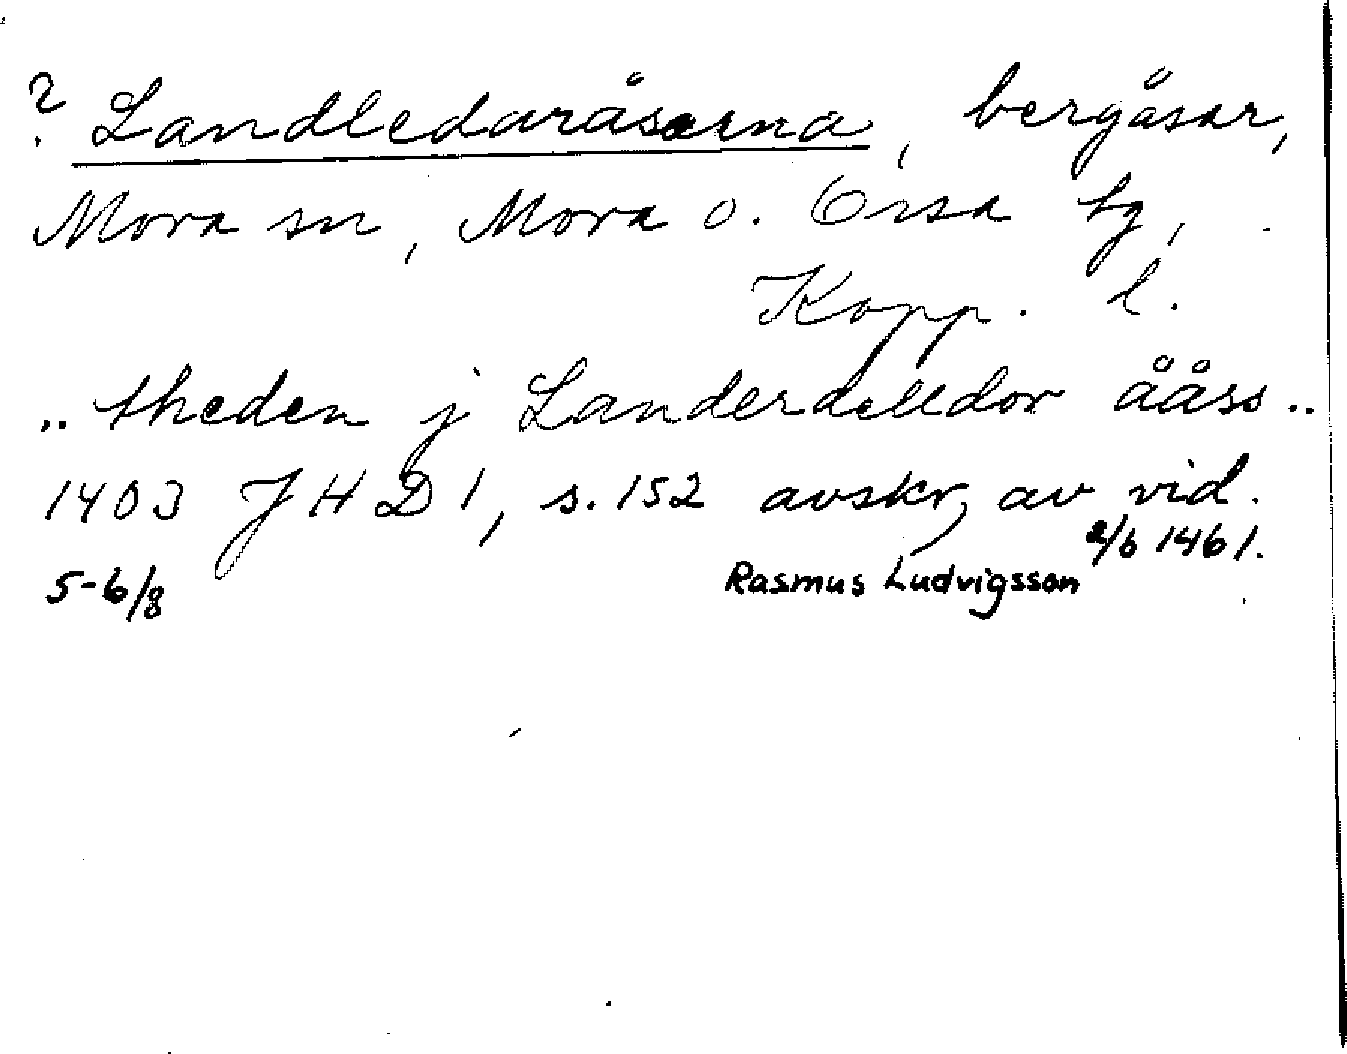 ? Landledaråserna, bergåsar,
Mora sn, Mora o. Orsa tg,
Kopp. l.
.. theden j Landerdelldor ååss ..
1403 JHD 1, s. 152 avskr, av vid.
2/6 1461.
5-6/8 Rasmus Ludvigsson